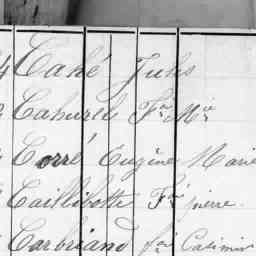 Cahé Jules
Cahurel Fois Mie
Corré Eugène Marie
Caillibotte Fois pierre.
Carbriand foi Casimir